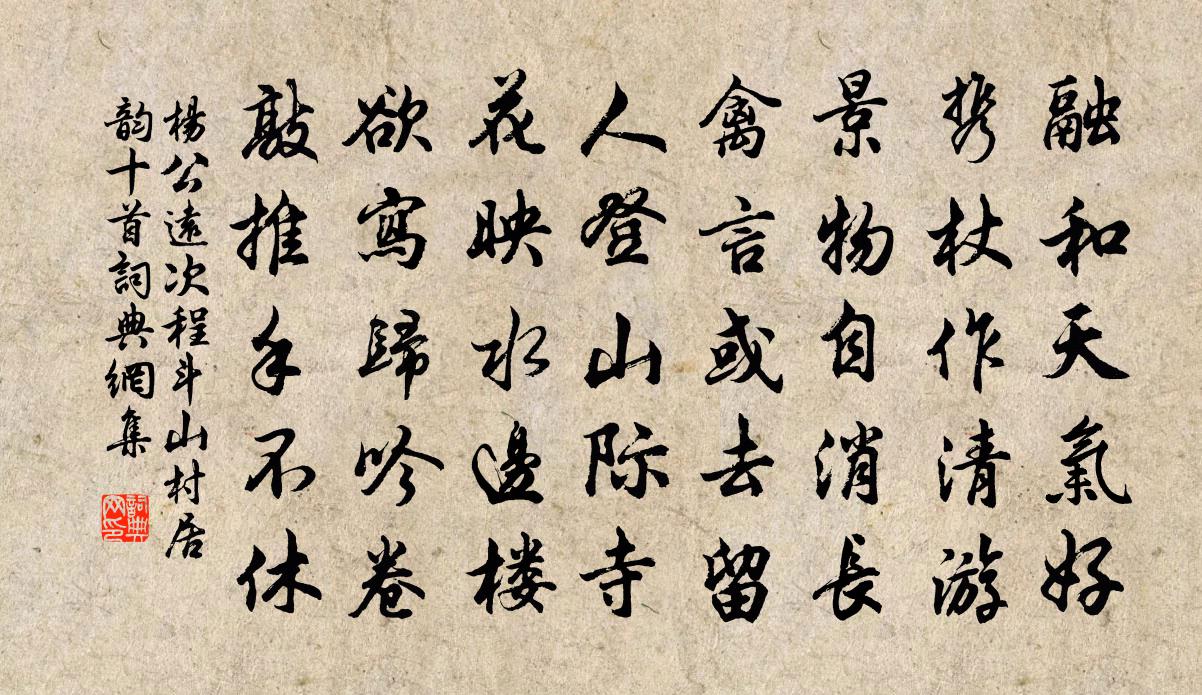 融和天氣好
携杖作清游
景物自消長
禽言或去留
人登山际寺
花映水邊楼
欲寫歸吟卷
敲推手不休
楊公遠次程斗山村居
韵十首詞典網集
詞典
网印